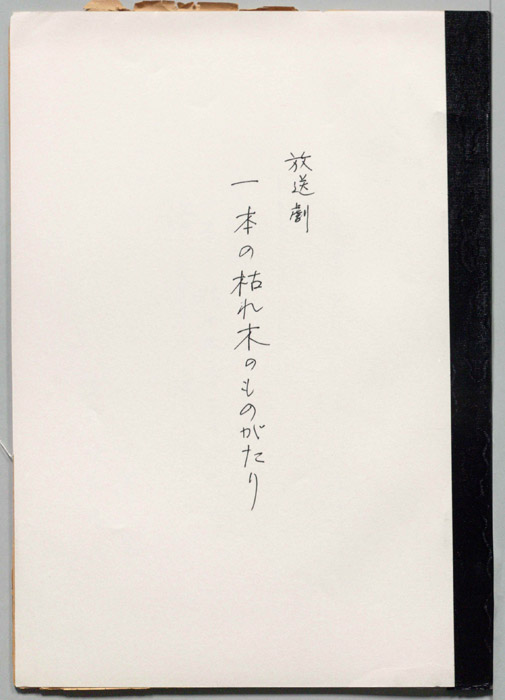 放送劇
一本の枯れ木のものがたり